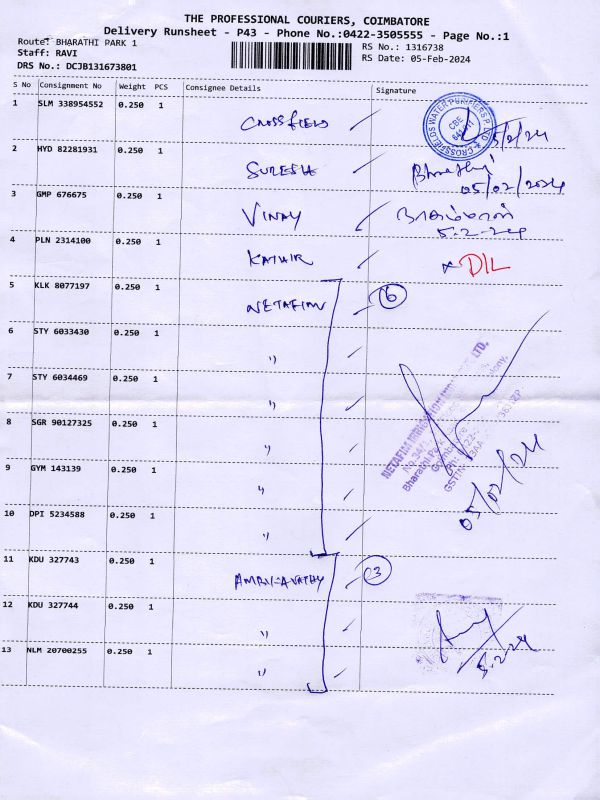 THE PROFESSIONAL COURIERS, COIMBATORE
Delivery Runsheet - P43 - Phone No.:0422-3505555 - Page No.:1
Route: BHARATHI PARK 1
RS No.: 1316738
Staff: RAVI
RS Date: 05-Feb-2024
DRS No.: DCJB131673801
S No Consignment No Weight PCS Consignee Details Signature
1 SLM 338954552 0.250 1 CROSSFIELD 5/2/24
CROSSFIELDS WATER PURIFIERS P LTD
CBE
2 HYD 82281931 0.250 1 SURESH Bharathi
05/02/2024
3 GMP 676675 0.250 1 VINAY
5.2.24
4 PLN 2314100 0.250 1 KATHIR DIL
5 KLK 8077197 0.250 1 NETAFIM 6
6 STY 6033430 0.250 1 "
7 STY 6034469 0.250 1 "
8 SGR 90127325 0.250 1 "
9 GYM 143139 0.250 1 "
10 DPI 5234588 0.250 1 "
NETAFIM IRRIGATION LTD.
Bharathi Park
Coimbatore
GSTIN
05/02/24
11 KDU 327743 0.250 1 AMRUTAVATHY 3
12 KDU 327744 0.250 1 "
13 NLM 20700255 0.250 1 "
5.2.24